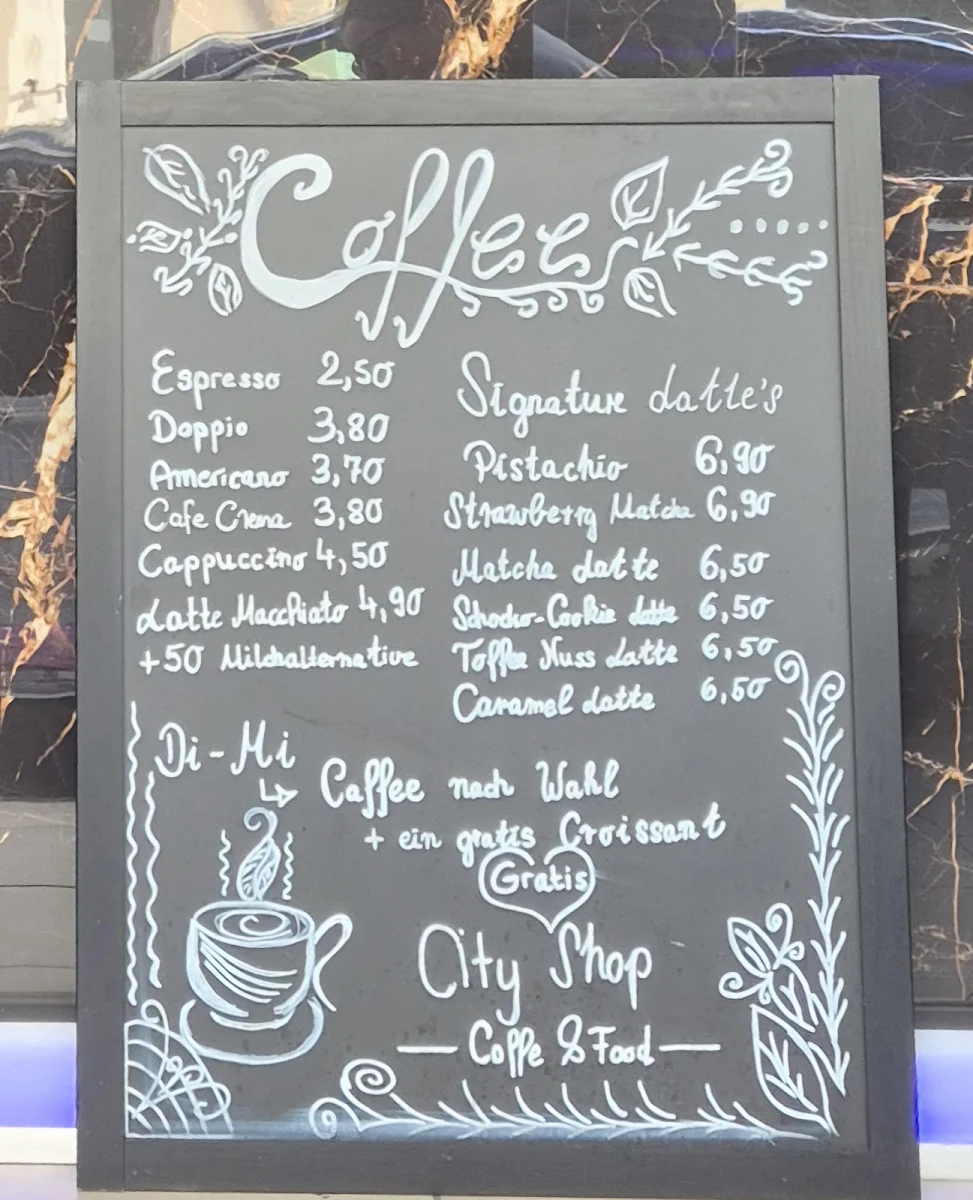 Coffee
Espresso 2,50
Doppio 3,80
Americano 3,70
Cafe Crema 3,80
Cappuccino 4,50
Latte Macchiato 4,90
+50 Milchalternative
Signature Latte's
Pistachio 6,90
Strawberry Matcha 6,90
Matcha Latte 6,50
Schoko-Cookie Latte 6,50
Toffee Nuss Latte 6,50
Caramel Latte 6,50
Di-Mi
Caffee nach Wahl
+ ein gratis Croissant
Gratis
City Shop
— Coffe & Food —